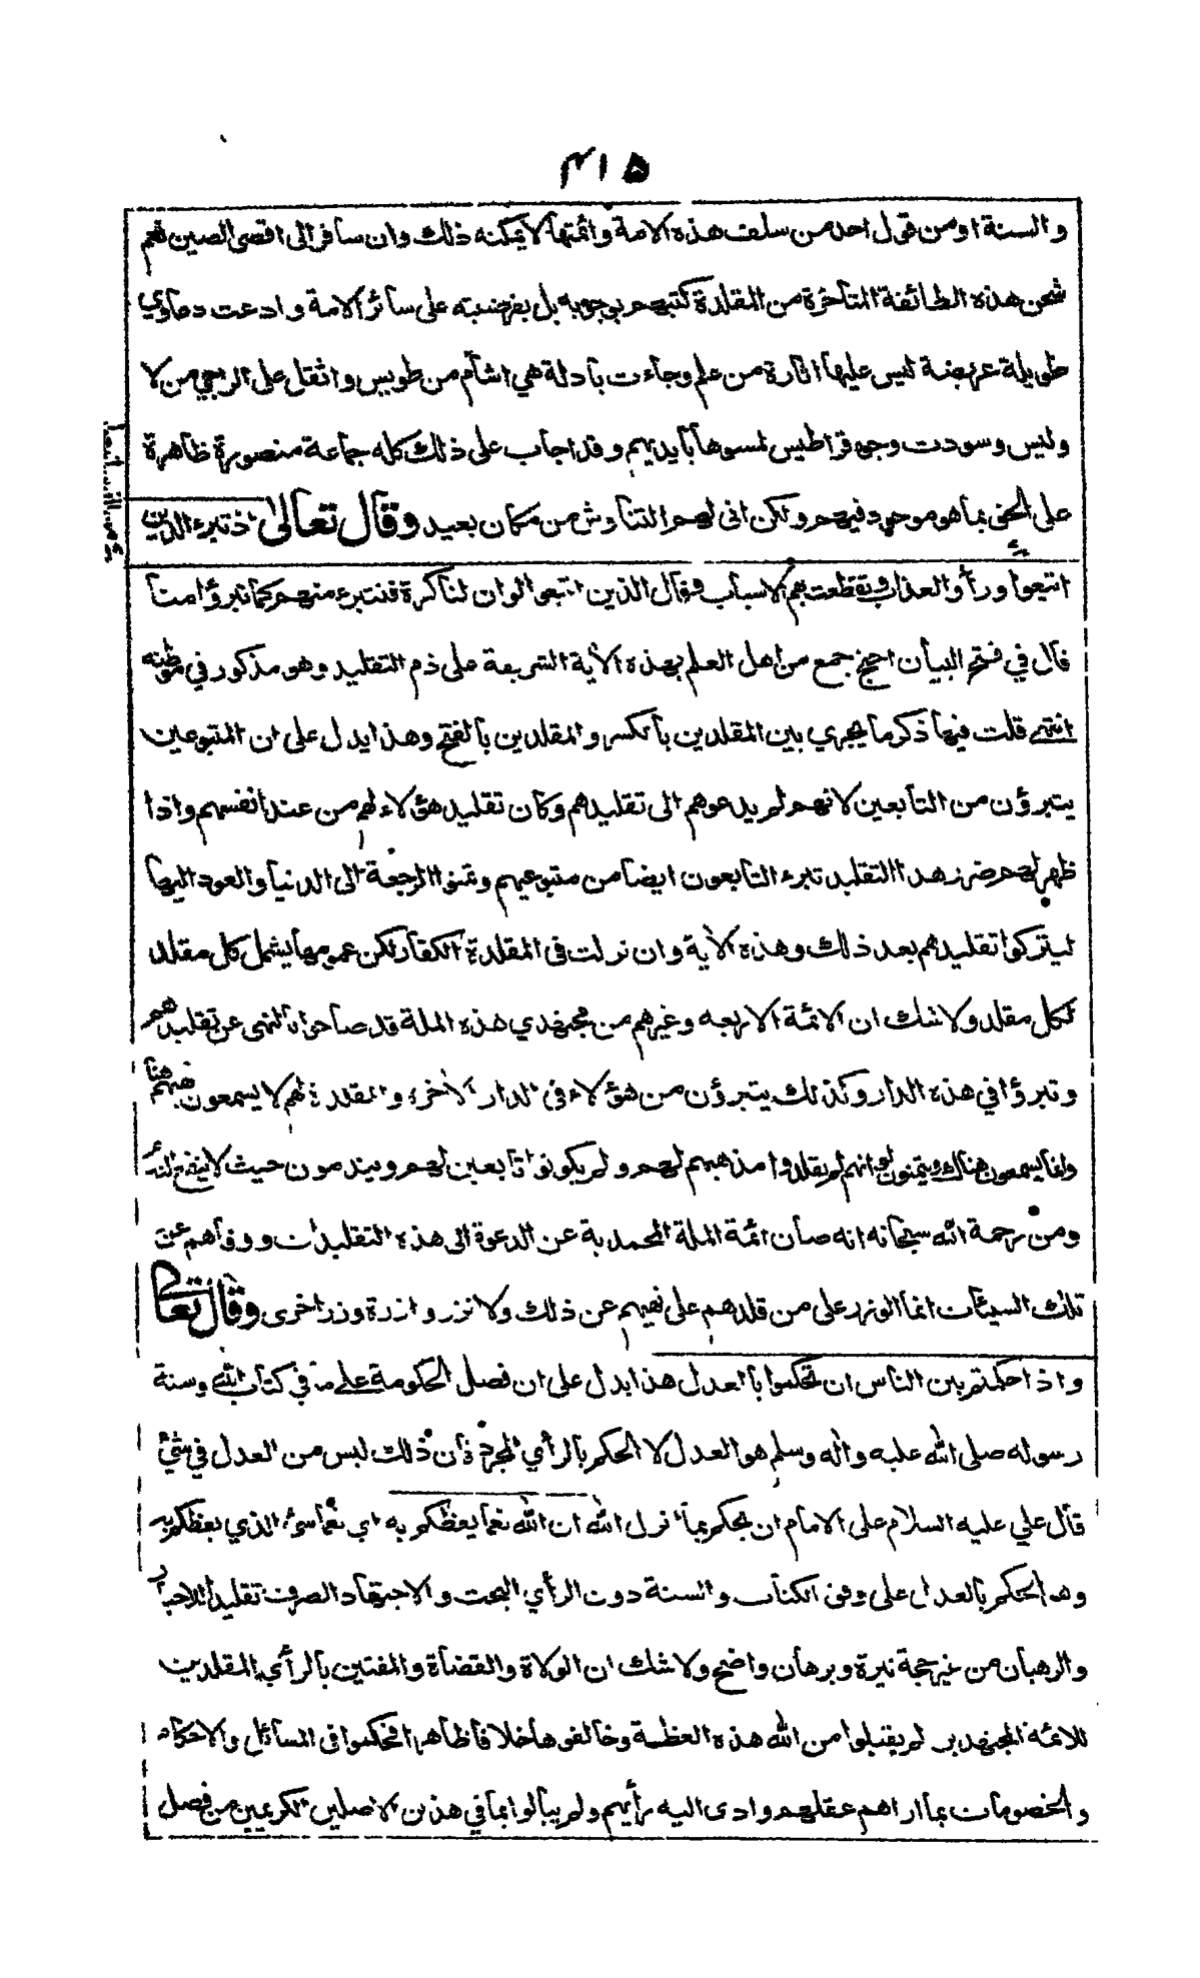 ٣١٥
والسنة او من قول احد من سلف هذه الامة وائمتها لا يمكنه ذلك وان سافر الى اقصى الصين نعم
شحن هذه الطائفة المتأخرة من المقلدة كتبهم بوجوبه بل بفرضيته على سائر الامة وادعت دعاوي
طويلة عريضة ليس عليها اثارة من علم وجاءت بادلة هي اشأم من طويس واثقل على الرجي من لا
وليس وسودت وجوه قراطيس لمسوها بأيديهم وقد اجاب على ذلك كله جماعة منصورة ظاهرة
على الحق بما هو موجود فيهم ولكن انى لهم التناوش من مكان بعيد وقال تعالى اذ تبرء الذين
اتبعوا ورأوا العذاب وتقطعت بهم الاسباب وقال الذين اتبعوا لو ان لنا كرة فنتبرء منهم كما تبرؤا منا
قال في فتح البيان احتج جمع من اهل العلم بهذه الآية الشريعة على ذم التقليد وهو مذكور في موطنه
انتهى قلت فيها ذكر ما يجري بين المقلدين بالكسر والمقلدين بالفتح وهذا يدل على ان المتبوعين
يتبرؤن من التابعين لانهم لم يدعوهم الى تقليدهم وكان تقليد هؤلاء لهم من عند انفسهم واذا
ظهر لهم ضرر هذا التقليد تبرء التابعون ايضا من متبوعيهم وتمنوا الرجعة الى الدنيا والعود اليها
ليتركوا تقليدهم بعد ذلك وهذه الآية وان نزلت في المقلدة الكفار لكن عمومها يشمل كل مقلد
لكل مقلد ولا شك ان الائمة الاربعه وغيرهم من مجتهدي هذه الملة قد صاحوا بالنهى عن تقليدهم
وتبرؤا في هذه الدار وكذلك يتبرؤن من هؤلاء في الدار الاخرى والمقلدة لهم لا يسمعون نهيهم هنا
وانما يسمعون هناك ويتمنون لو انهم لم يقلدوا مذهبهم لهم ولم يكونوا تابعين لهم ويندمون حيث لا ينفع الندم
ومن رحمة الله سبحانه انه صان ائمة الملة المحمدية عن الدعوة الى هذه التقليدات ووقاهم عن
تلك السيئات انما الوزر على من قلدهم على نهيهم عن ذلك ولا تزر وازرة وزر اخرى وقال تعالى
واذا حكمتم بين الناس ان تحكموا بالعدل هذا يدل على ان فصل الحكومة على ما في كتاب الله وسنة
رسوله صلى الله عليه واله وسلم هو العدل لا الحكم بالرأي المجرد فان ذلك ليس من العدل في شئ
قال علي عليه السلام على الامام ان يحكم بما انزل الله ان الله نعما يعظكم به اي نعما شئ الذي يعظكم به
وهو الحكم بالعدل على وفق الكتاب والسنة دون الرأي البحت والاجتهاد الصرف تقليدا للاحبار
والرهبان من غير حجة نيرة وبرهان واضح ولا شك ان الولاة والقضاة والمفتين بالرأي المقلدين
للائمة المجتهدين لم يقبلوا من الله هذه العظمة وخالفوها خلافا ظاهرا فحكموا في المسائل والاحكام
والخصومات بما اراهم عقلهم وادى اليه رأيهم ولم يبالوا بما في هذين الاصلين الكريمين من فصل